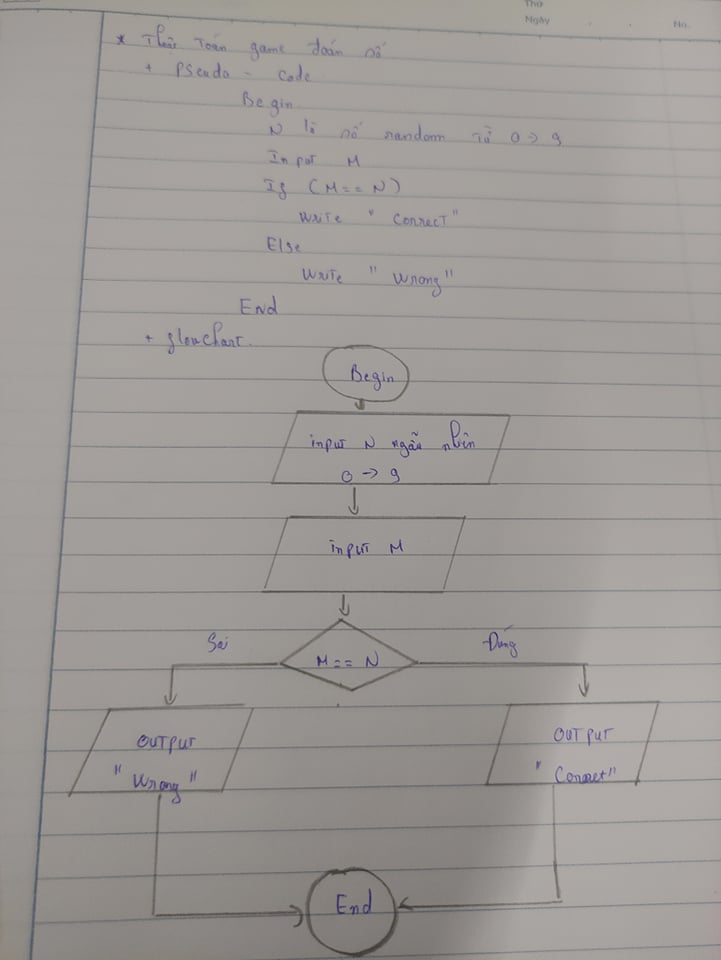 Thứ
Ngày
No.
* Thuật Toán game đoán số
+ Pseudo - Code
Begin
N là số random từ 0 → 9
Input M
If (M == N)
Write "Correct"
Else
Write "Wrong"
End
+ flowchart.
Begin
input N ngẫu nhiên
0 → 9
input M
Sai
Đúng
M == N
OUTPUT
"Wrong"
OUTPUT
"Correct"
End